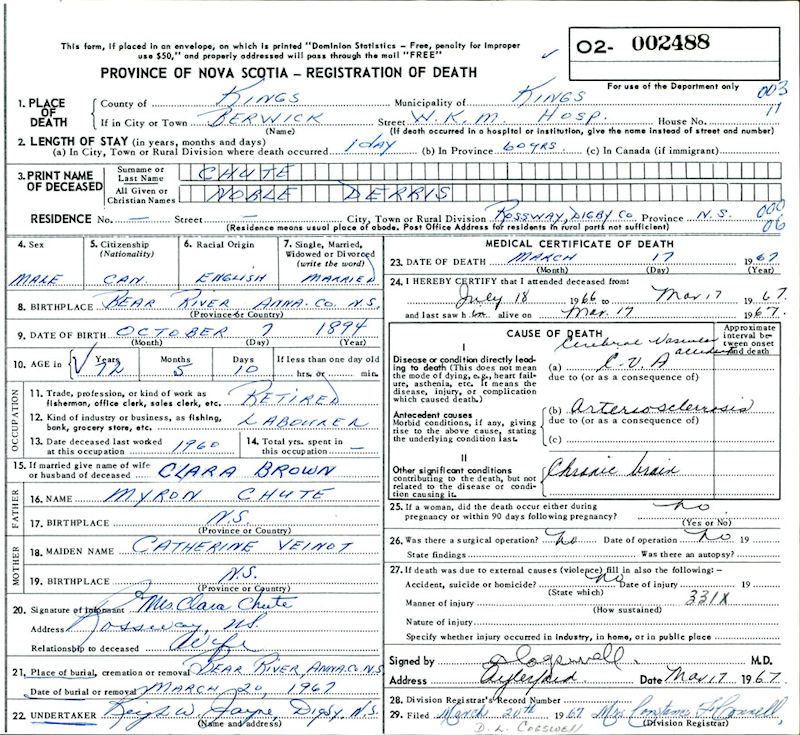 This form, if placed in an envelope, on which is printed "Dominion Statistics – Free, penalty for improper
use $50," and properly addressed will pass through the mail "FREE"
O2- 002488
PROVINCE OF NOVA SCOTIA – REGISTRATION OF DEATH
For use of the Department only
003
11
1. PLACE OF DEATH
County of KINGS Municipality of KINGS
If in City or Town BERWICK Street W. K. M. HOSP. House No.
(Name) (If death occurred in a hospital or institution, give the name instead of street and number)
2. LENGTH OF STAY (in years, months and days)
(a) In City, Town or Rural Division where death occurred 1 day (b) In Province 60 yrs (c) In Canada (if immigrant)
3. PRINT NAME OF DECEASED
Surname or Last Name CHUTE
All Given or Christian Names NOBLE DERRIS
RESIDENCE No. — Street — City, Town or Rural Division ROSSWAY, DIGBY CO Province N.S.
000
06
(Residence means usual place of abode. Post Office Address for residents in rural parts not sufficient)
4. Sex
MALE
5. Citizenship
(Nationality)
CAN.
6. Racial Origin
ENGLISH
7. Single, Married,
Widowed or Divorced
(write the word)
MARRIED
8. BIRTHPLACE BEAR RIVER ANNA. CO. N.S.
(Province or Country)
9. DATE OF BIRTH OCTOBER 7 1894
(Month) (Day) (Year)
10. AGE in Years Months Days If less than one day old
72 5 10 hrs. or min.
OCCUPATION
11. Trade, profession, or kind of work as
fisherman, office clerk, sales clerk, etc. RETIRED
12. Kind of industry or business, as fishing,
bank, grocery store, etc. LABOURER
13. Date deceased last worked
at this occupation 1960
14. Total yrs. spent in
this occupation —
15. If married give name of wife
or husband of deceased CLARA BROWN
FATHER
16. NAME MYRON CHUTE
17. BIRTHPLACE N.S.
(Province or Country)
MOTHER
18. MAIDEN NAME CATHERINE VEINOT
19. BIRTHPLACE N.S.
(Province or Country)
20. Signature of informant Mrs. Clara Chute
Address Rossway, N.S.
Relationship to deceased Wife
21. Place of burial, cremation or removal BEAR RIVER, ANNA. CO. N.S.
Date of burial or removal MARCH 20, 1967
22. UNDERTAKER W. Jayne, Digby, N.S.
(Name and address)
MEDICAL CERTIFICATE OF DEATH
23. DATE OF DEATH MARCH 17 1967
(Month) (Day) (Year)
24. I HEREBY CERTIFY that I attended deceased from:
July 18 1966 to Mar. 17 1967.
and last saw him alive on Mar. 17 1967.
CAUSE OF DEATH
Approximate interval between onset and death
I
Disease or condition directly leading to death (This does not mean the mode of dying, e.g., heart failure, asthenia, etc. It means the disease, injury, or complication which caused death.)
Cerebral Vascular accident
(a) C.V.A
due to (or as a consequence of)
Antecedent causes
Morbid conditions, if any, giving rise to the above cause, stating the underlying condition last.
(b) Arteriosclerosis
due to (or as a consequence of)
(c)
II
Other significant conditions
contributing to the death, but not related to the disease or condition causing it.
Chronic brain
25. If a woman, did the death occur either during
pregnancy or within 90 days following pregnancy? no
(Yes or No)
26. Was there a surgical operation? no Date of operation no 19
State findings Was there an autopsy?
27. If death was due to external causes (violence) fill in also the following:-
Accident, suicide or homicide? no Date of injury 19
(State which)
331X
Manner of injury
(How sustained)
Nature of injury
Specify whether injury occurred in industry, in home, or in public place
Signed by Cogswell M.D.
Address Date Mar. 17 1967.
28. Division Registrar's Record Number
29. Filed March 20th 1967 Mrs.
(Division Registrar)
D. L. COGSWELL